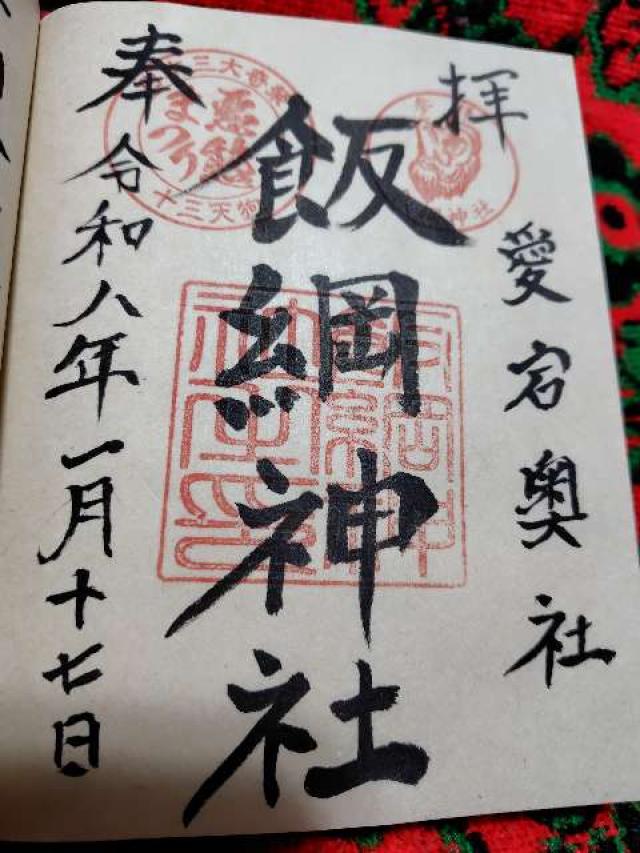 奉拝
愛宕奥社
飯綱神社
令和八年一月十七日
悪態
まつり
十三天狗
神社